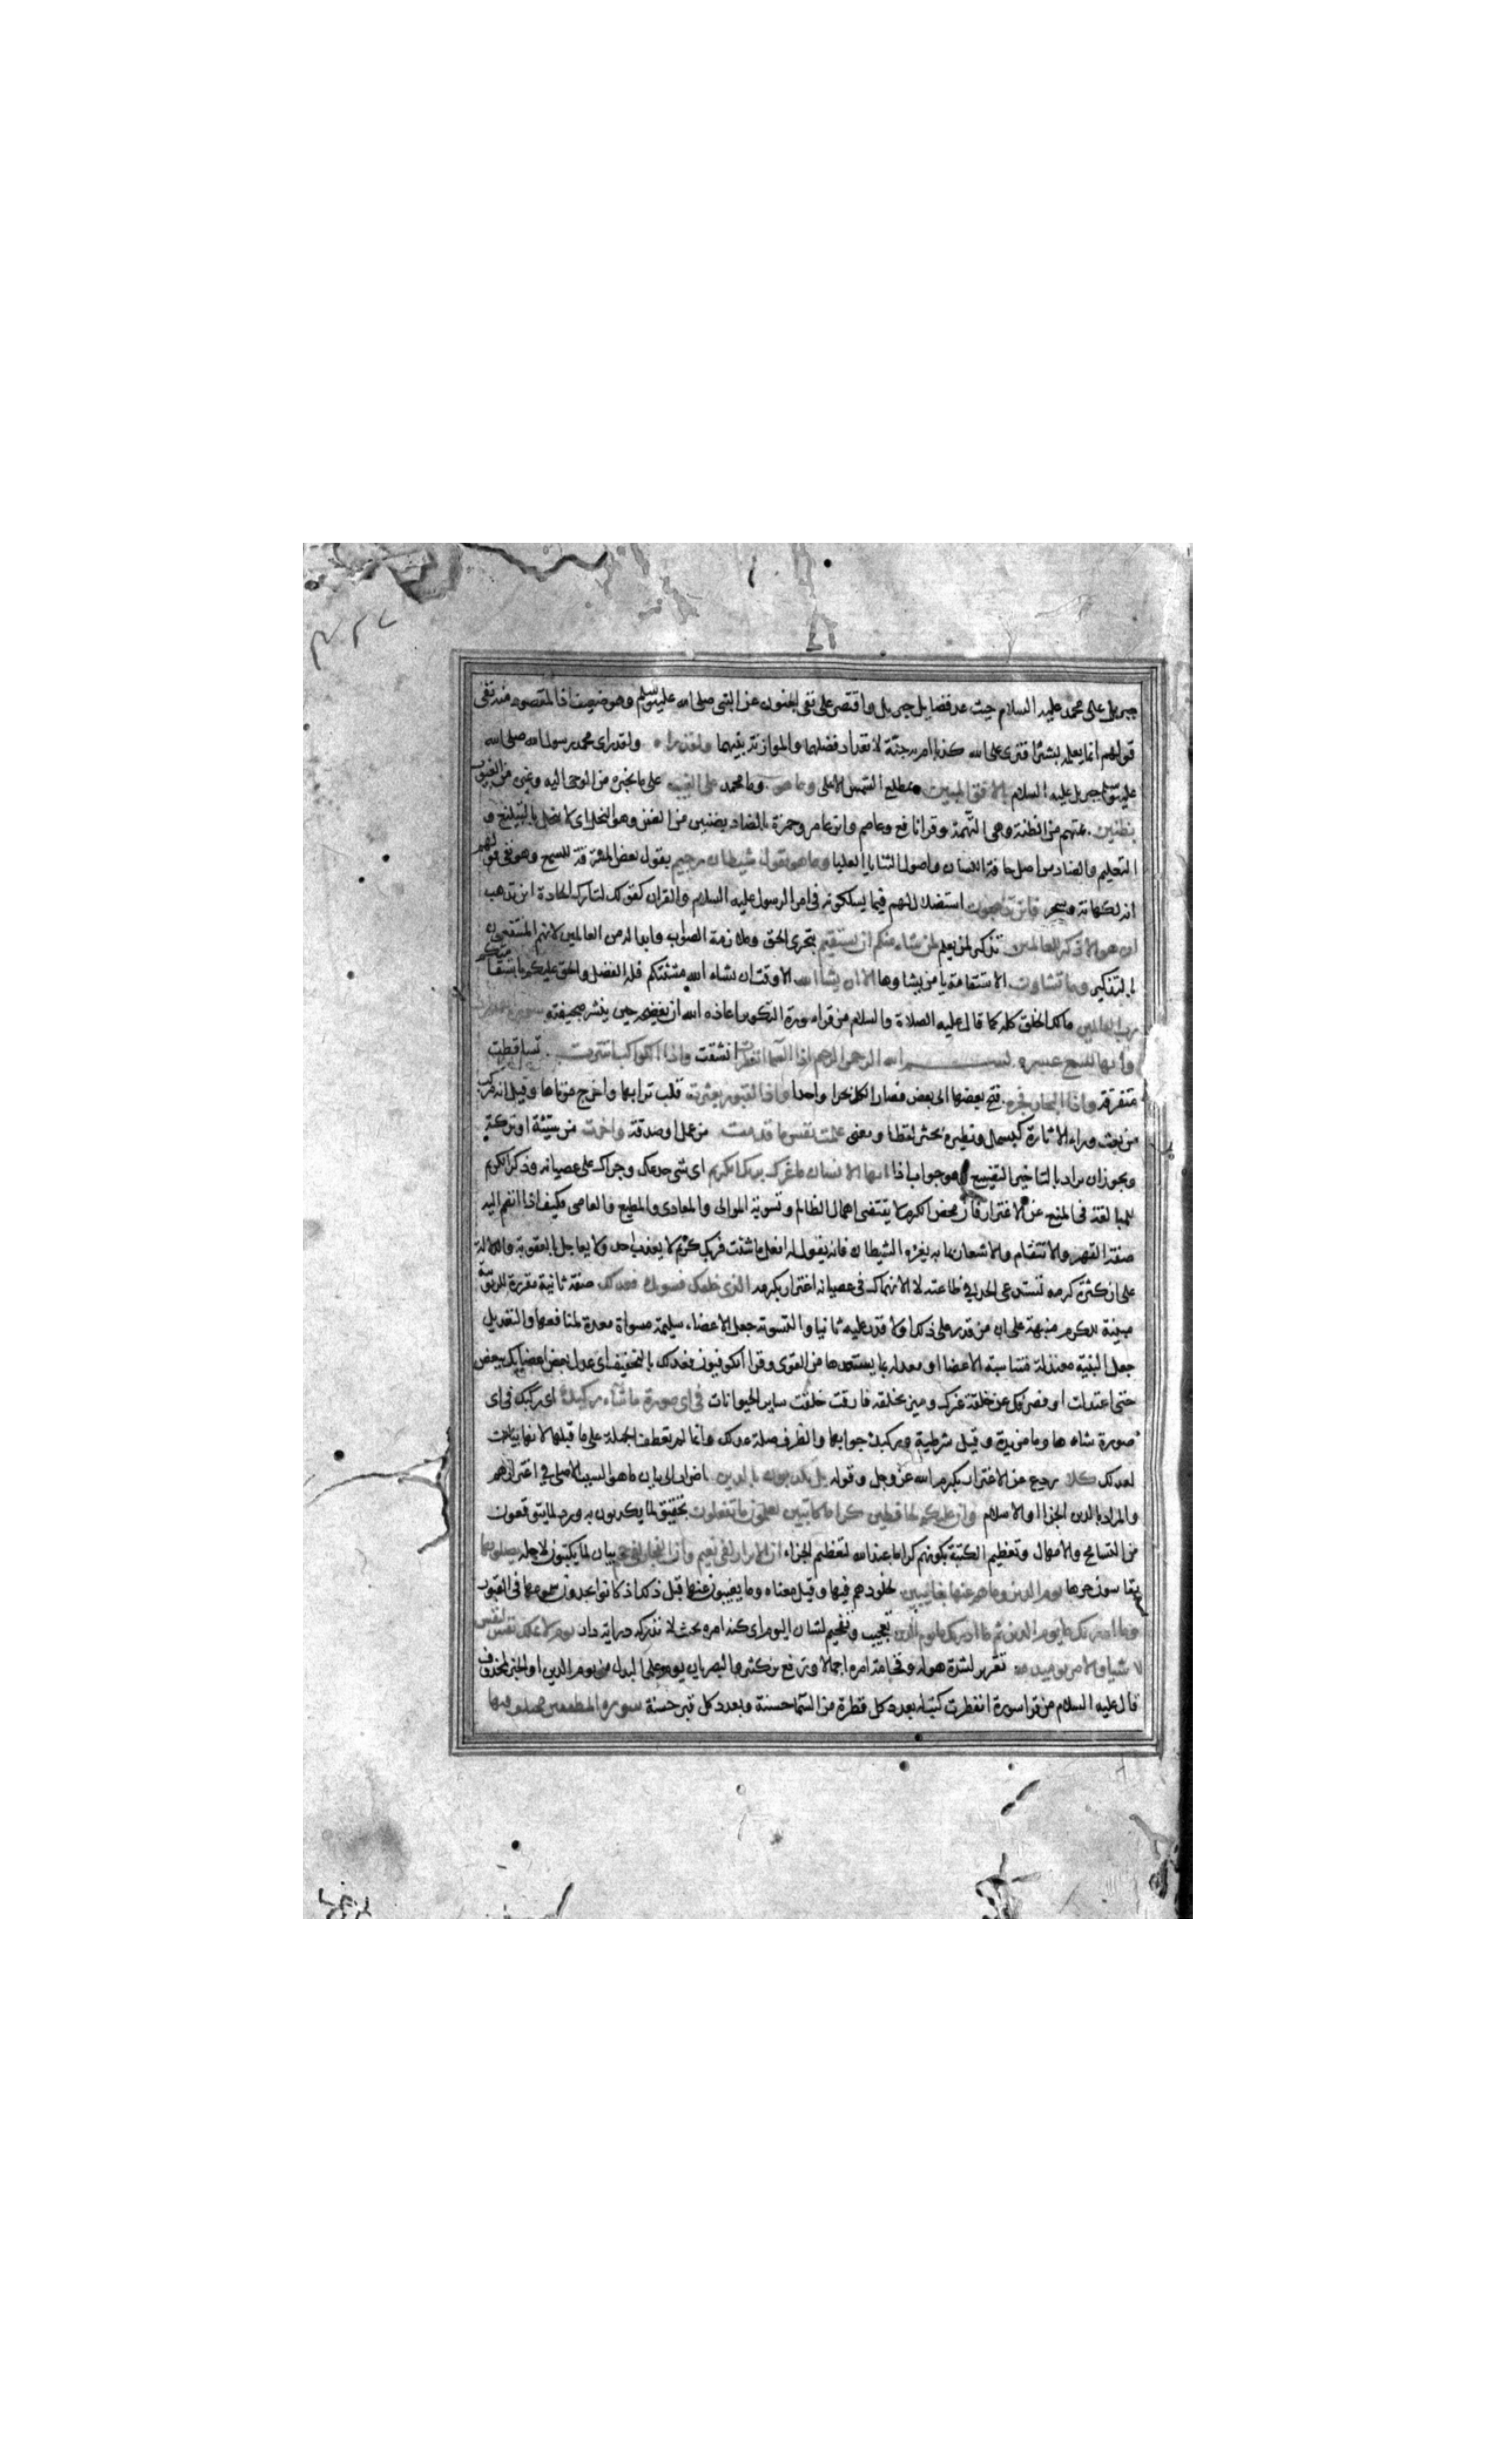 جبريل على محمد عليه السلام حيث عد فضايل جبريل واقتصر على نفى الجنون عن النبى صلى الله عليه وسلم وهو ضعيف اذ المقصود منه نفى
قولهم انما يعلمه بشر افترى على الله كذبا ام به جنة لا تعداد فضلهما والموازنة بينهما ولقد راه ولقد راى محمد رسول الله صلى الله
عليه وسلم جبريل عليه السلام بالافق المبين بمطلع الشمس الاعلى وما هو وما محمد على الغيب على ما يخبره من الوحى اليه وغيره من الغيوب
بظنين بمتهم من الظنة وهى التهمة وقرا نافع وعاصم وابن عامر وحمزة بالضاد بضنين من الضن وهو البخل اى لا يبخل بالتبليغ و
التعليم والضاد من اصل حافة اللسان واصول الثنايا العليا وما هو بقول شيطان رجيم بقول بعض المسترقة للسمع وهو نفى قولهم
انه لكهانة وسحر فاين تذهبون استضلال لهم فيما يسلكونه فى امر الرسول عليه السلام والقران كقولك لتارك الجادة اين تذهب
ان هو الا ذكر للعالمين تذكير لمن يعلم لمن شاء منكم ان يستقيم بتحرى الحق وملازمة الصواب وابداله من العالمين لانهم المنتفعون
بالتذكير وما تشاون الاستقامة يا من يشاوها الا ان يشا الله الا وقت ان يشاء الله مشئتكم فله الفضل والحق عليكم باستقامتكم
رب العالمين مالك الخلق كله كما قال عليه الصلاة والسلام من قرا سورة التكوير اعاذه الله ان يفضحه حين ينشر صحيفته
وايها تسع عشره بسم الله الرحمن الرحيم اذا السما انفطرت انشقت واذا الكواكب انتثرت تساقطت
متفرقة واذا البحار فجرت فتح بعضها الى بعض فصار الكل بحرا واحدا واذا القبور بعثرت قلب ترابها واخرج موتاها وقيل انه مركب
من بعث وراء الاثارة كبسمل ونظيره بحثر لفظا ومعنى علمت نفس ما قدمت من عمل او صدقة واخرت من سيئة او تركة
ويجوز ان يراد بالتاخير التضييع وهو جواب اذا ايها الانسان ما غرك بربك الكريم اى شى خدعك وجراك على عصيانه وذكر الكريم
للمبالغة فى المنع عن الاغترار فان محض الكرم لا يقتضى اهمال الظالم وتسوية الموالى والمعادى والمطيع والعاصى فكيف اذا انضم اليه
صفة القهر والانتقام والاشعار بما به يغره الشيطان فانه يقول له افعل ما شئت فربك كريم لا يعذب احد ولا يعاجل بالعقوبة والدلالة
على ان كثرة كرمه تستدعى الجد فى طاعته لا الانهماك فى عصيانه اغترارا بكرمه الذى خلقك فسويك فعدلك صفة ثانية مقررة للربوبية
مبينة للكرم منبهة على ان من قدر على ذلك اولا قدر عليه ثانيا والتسوية جعل الاعضاء سليمة مسواة معدة لمنافعها والتعديل
جعل البنية معتدلة متناسبة الاعضا او معدلة بما يستعدها من القوى وقرا الكوفيون فعدلك بالتخفيف اى عدل بعض اعضايك ببعض
حتى اعتدلت او فصرفك عن خلقة غيرك وميزك بخلقه فارقت خلقت ساير الحيوانات فى اى صورة ما شاء ركبك اى ركبك فى اى
صورة شاء ها وما مزيدة وقيل شرطية وركبك جوابها والظرف صلة عدلك وانما لم تعطف الجملة على ما قبلها لانها بيان
لعدلك كلا ردع عن الاغترار بكرم الله عز وجل وقوله بل تكذبون بالدين اضراب الى بيان ما هو السبب الاصلى فى اغترارهم
والمراد بالدين الجزا او الاسلام وان عليكم لحافظين كراما كاتبين يعلمون ما تفعلون تحقيق لما يكذبون به ورد لما يتوقعون
من التسامح والاهمال وتعظيم الكتبة بكونهم كراما عند الله لتعظيم الجزاء ان الابرار لفى نعيم وان الفجار لفى جحيم بيان لما يكتبون لاجله يصلونها
يقاسون حرها يوم الدين وما هم عنها بغايبين لخلودهم فيها وقيل معناه وما يغيبون عنها قبل ذلك اذ كانوا يجدون سمومها فى القبور
وما ادريك ما يوم الدين ثم ما ادريك ما يوم الدين تعجيب وتفخيم لشان اليوم اى كنه امره بحيث لا تدركه دراية دار يوم لا تملك نفس لنفس
شيا والامر يوميذ لله تقرير لشدة هوله وفخامة امره اجمالا ورفع بن كثير والبصريان يوم على البدل من يوم الدين او الخبر لمحذوف
قال عليه السلام من قرا سورة انفطرت كتب له بعدد كل قطرة من السما حسنة وبعدد كل قبر حسنة سورة المطففين مختلف فيها